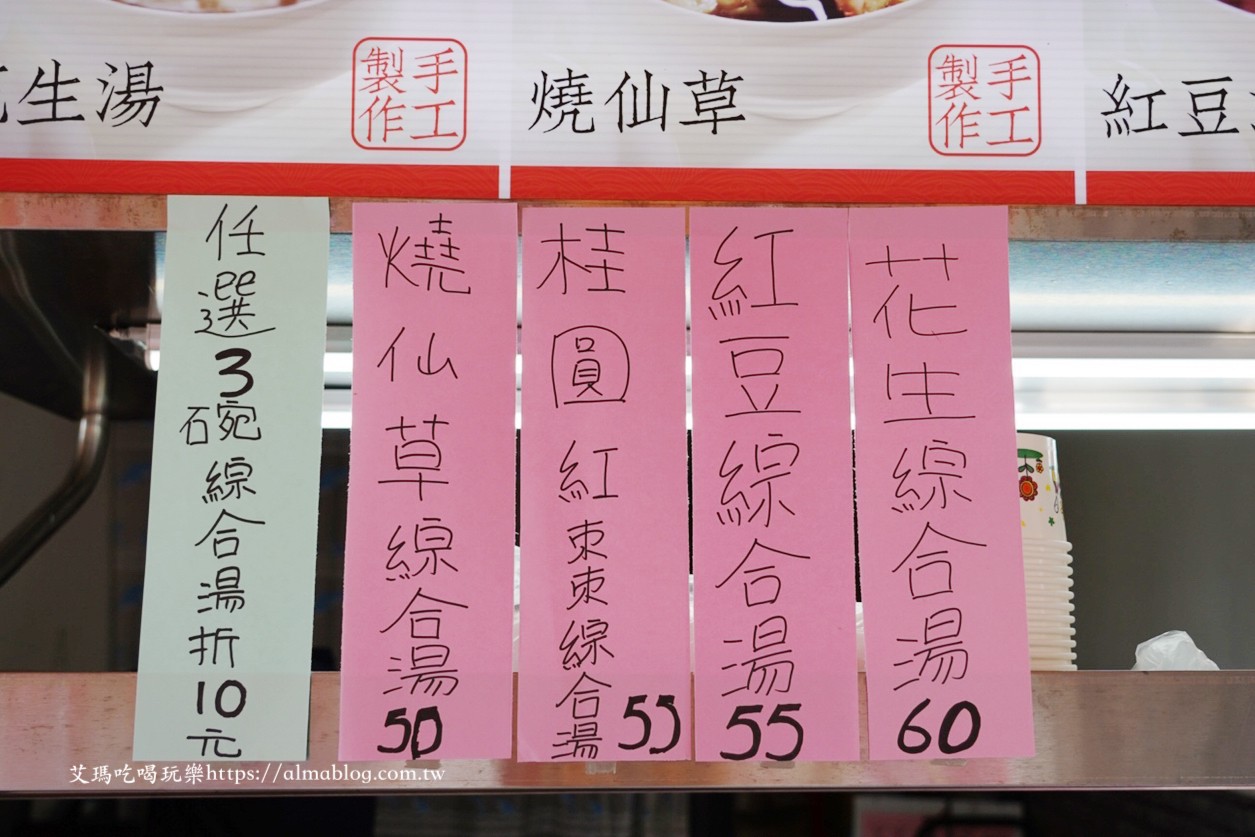 生湯
手工製作
燒仙草
手工製作
紅豆
任選3碗綜合湯折10元
燒仙草綜合湯50
桂圓紅棗綜合湯55
紅豆綜合湯55
花生綜合湯60
艾瑪吃喝玩樂https://almablog.com.tw